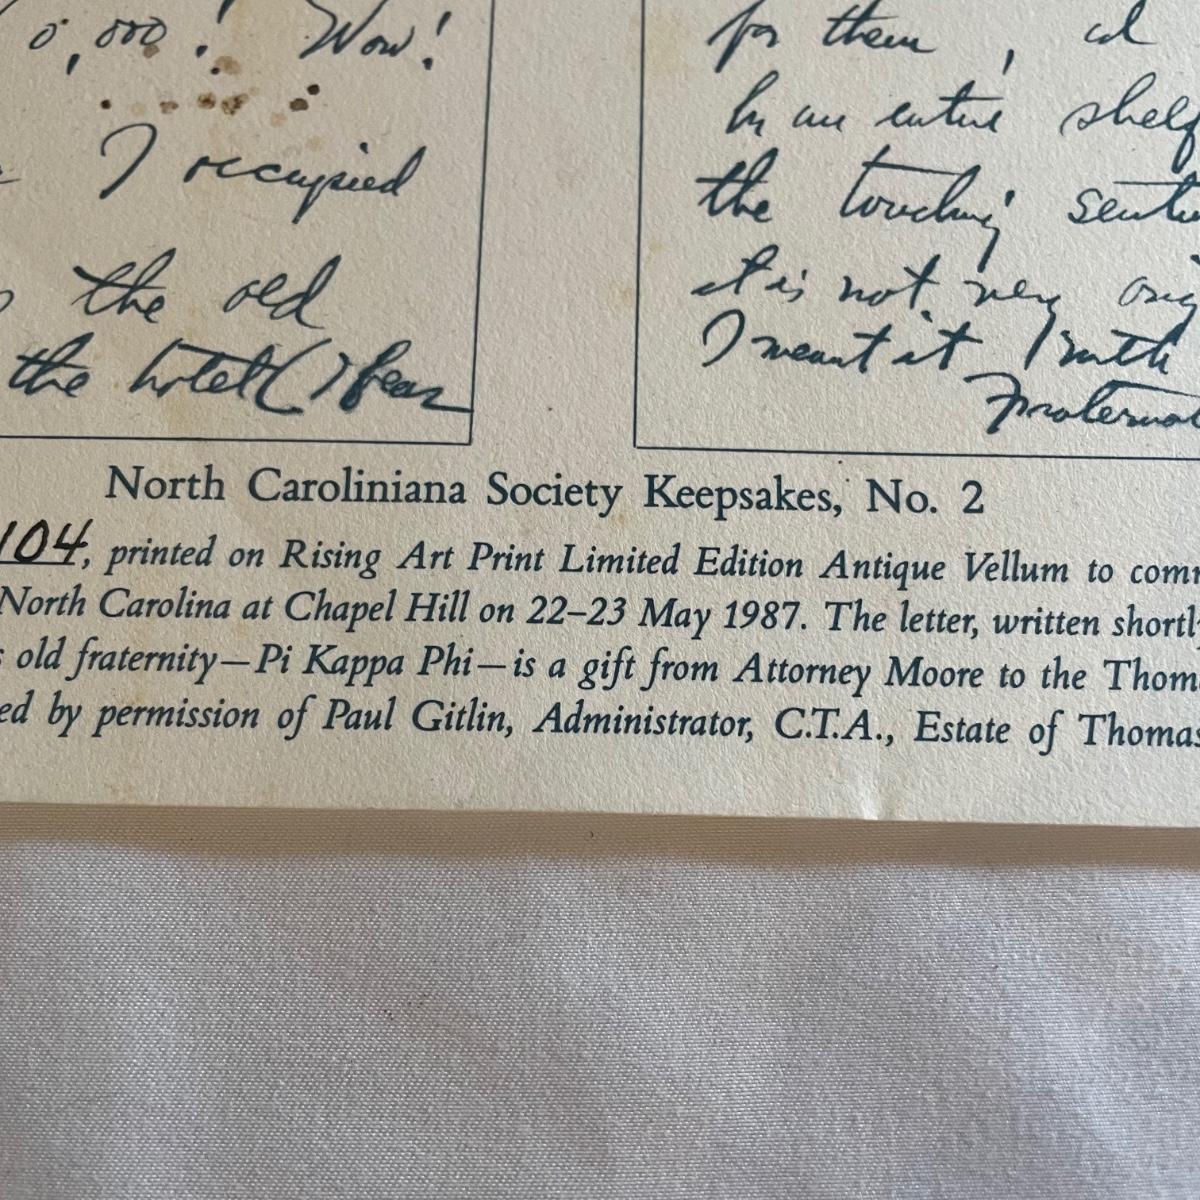 0,000! Wow!
I occupied
the old
the hotel (I fear
for them,
by an entire shelf
the touching
it is not very
I meant it
North Caroliniana Society Keepsakes, No. 2
104, printed on Rising Art Print Limited Edition Antique Vellum to comm
North Carolina at Chapel Hill on 22–23 May 1987. The letter, written shortly
s old fraternity—Pi Kappa Phi—is a gift from Attorney Moore to the Thom
ed by permission of Paul Gitlin, Administrator, C.T.A., Estate of Thomas